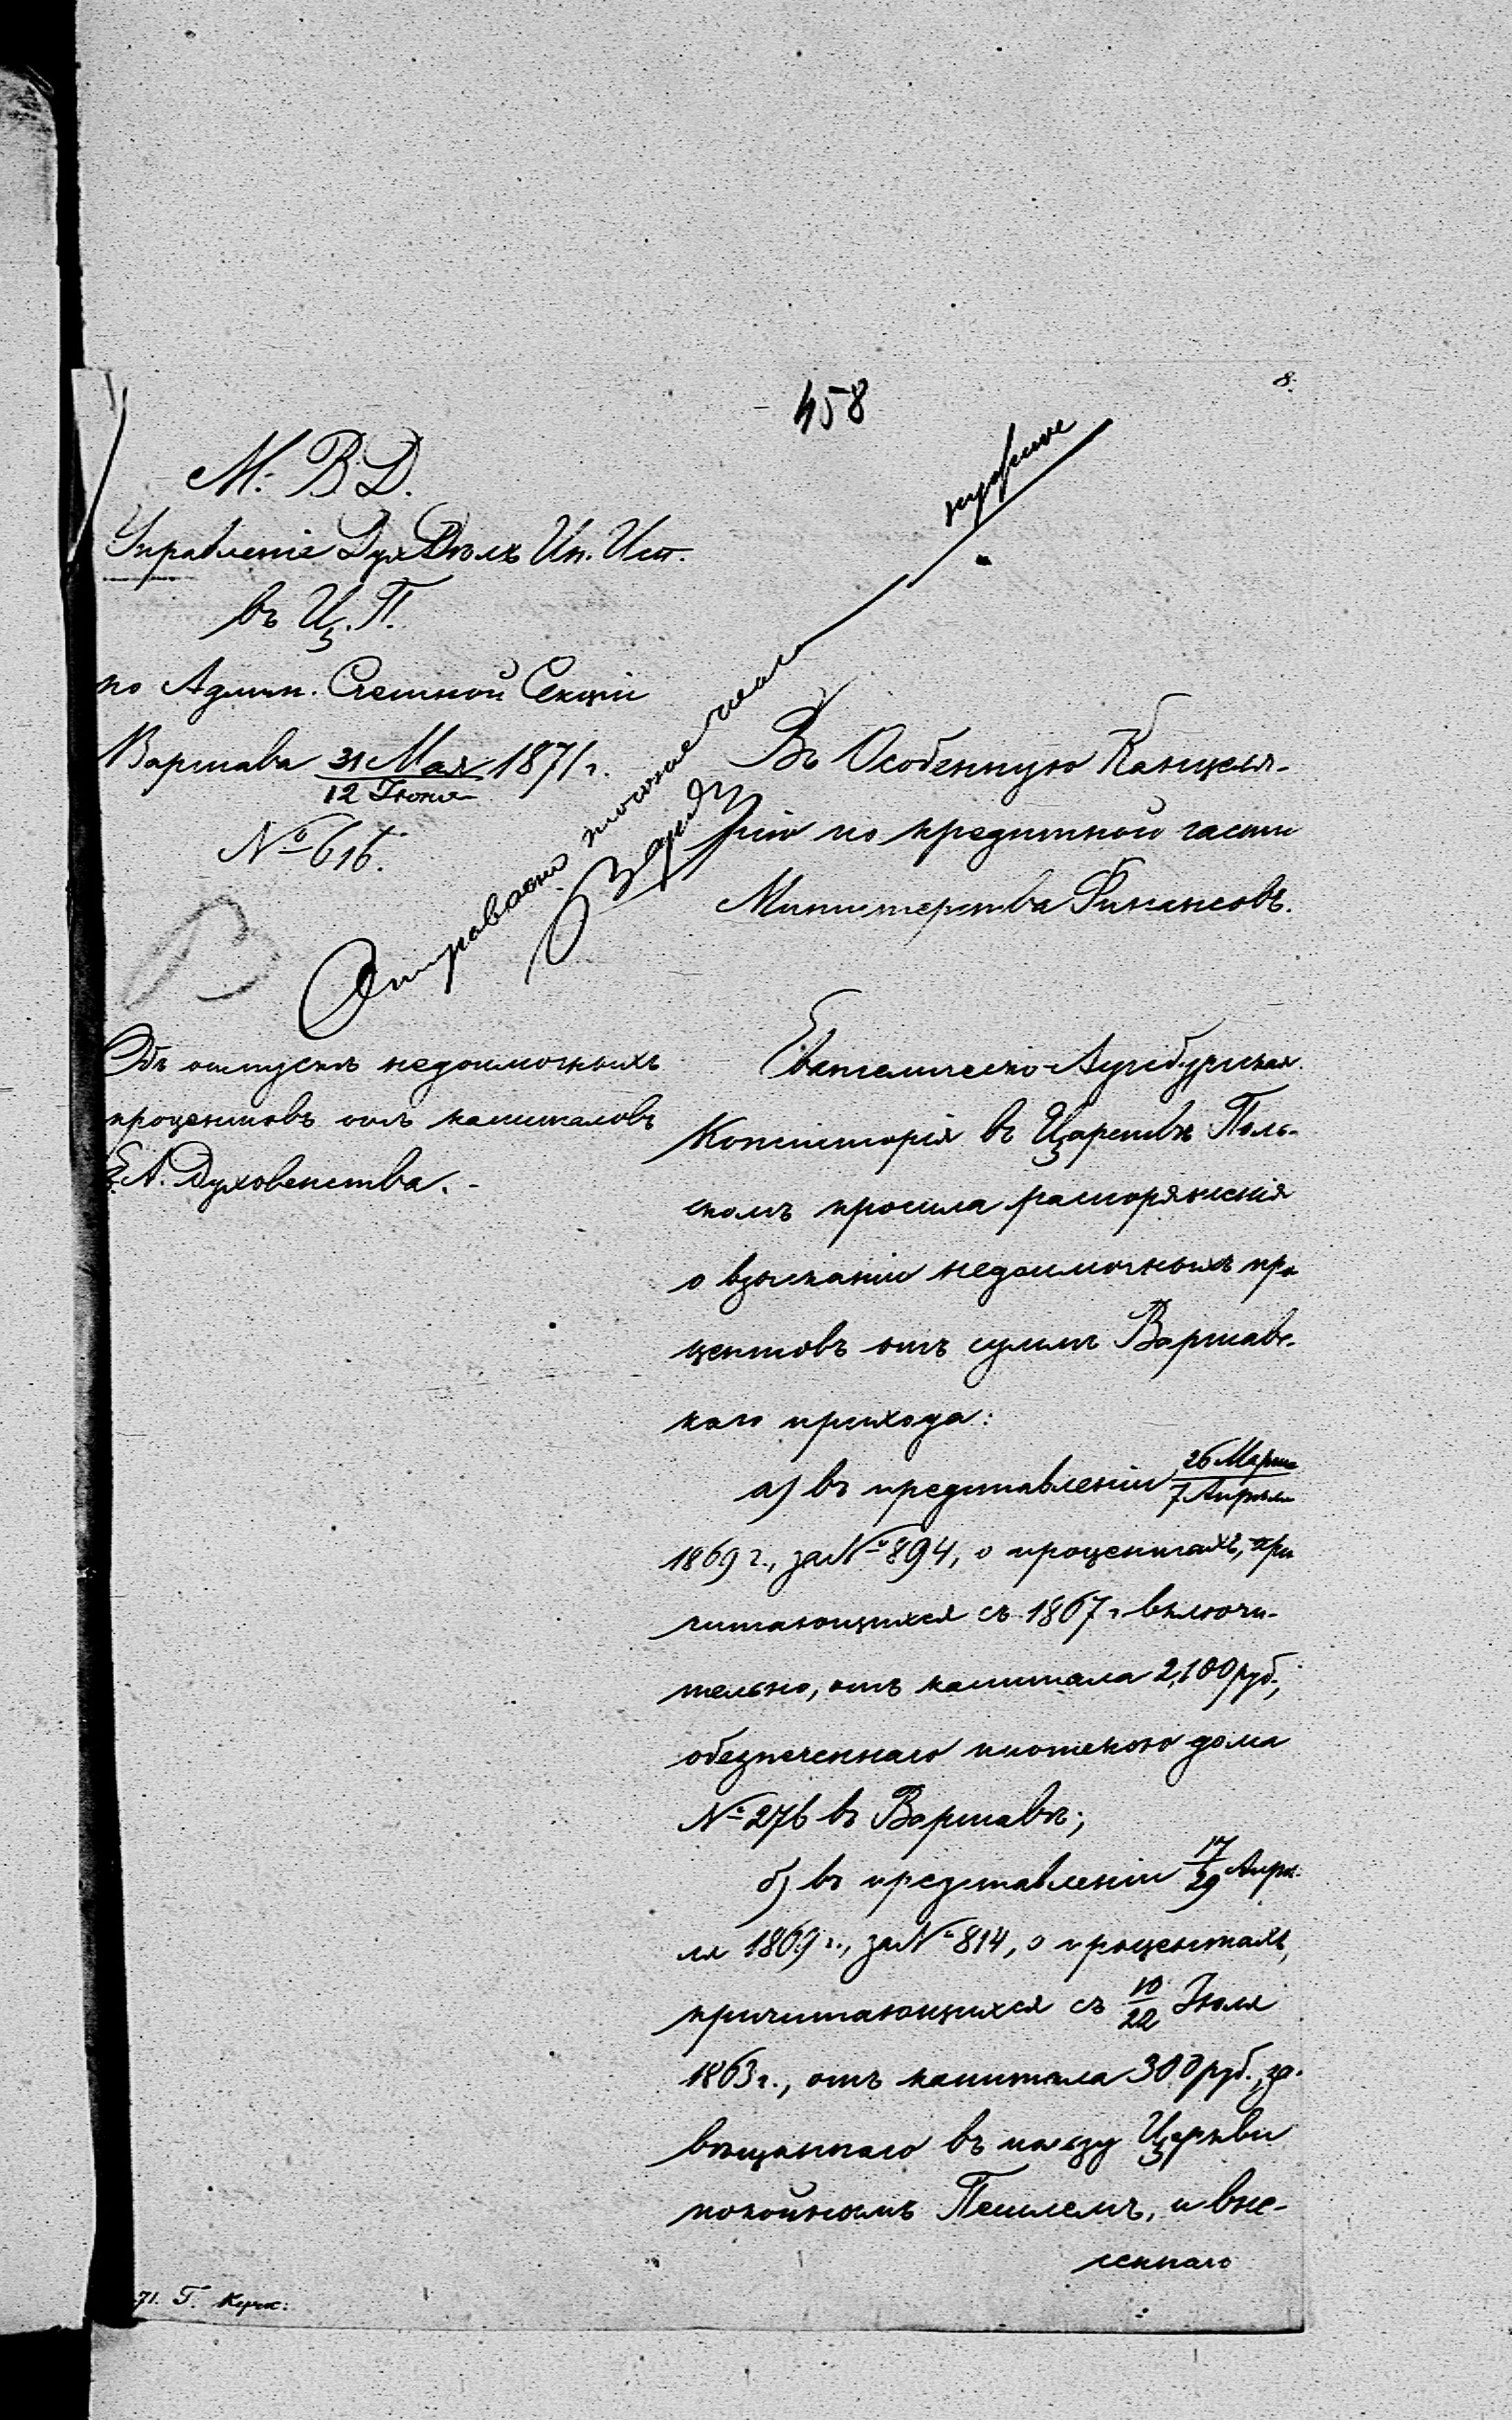 458
8.
М. В. Д.
Управленіе Дух. Дѣлъ Ин. Исп.
въ Ц. П.
по Админ. Счетной Секціи
Варшава 31 Мая / 12 Іюня 1871 г.
№ 616.
Въ Особенную Канцеля-
рію по кредитной части
Министерства Финансовъ.
Объ отпускѣ недоимочныхъ
процентовъ отъ капиталовъ
Е. А. Духовенства. -
Евангелическо-Аугсбургская
Консисторія въ Царствѣ Поль-
скомъ просила распоряженія
о взысканіи недоимочныхъ про
центовъ отъ суммъ Варшавс-
каго прихода:
а) въ представленіи 26 Марта / 7 Апрѣля
1869 г., за № 894, о процентахъ, при
читающихся съ 1867 г. включи-
тельно, отъ капитала 2,100 руб.,
обезпеченнаго ипотекою дома
№ 276 въ Варшавѣ;
б) въ представленіи 17/29 Апрѣ-
ля 1869 г., за № 814, о процентахъ,
причитающихся съ 10/22 Іюля
1863 г., отъ капитала 300 руб., за-
вѣщаннаго въ пользу Церкви
покойнымъ , и вне-
сеннаго
71. Г.